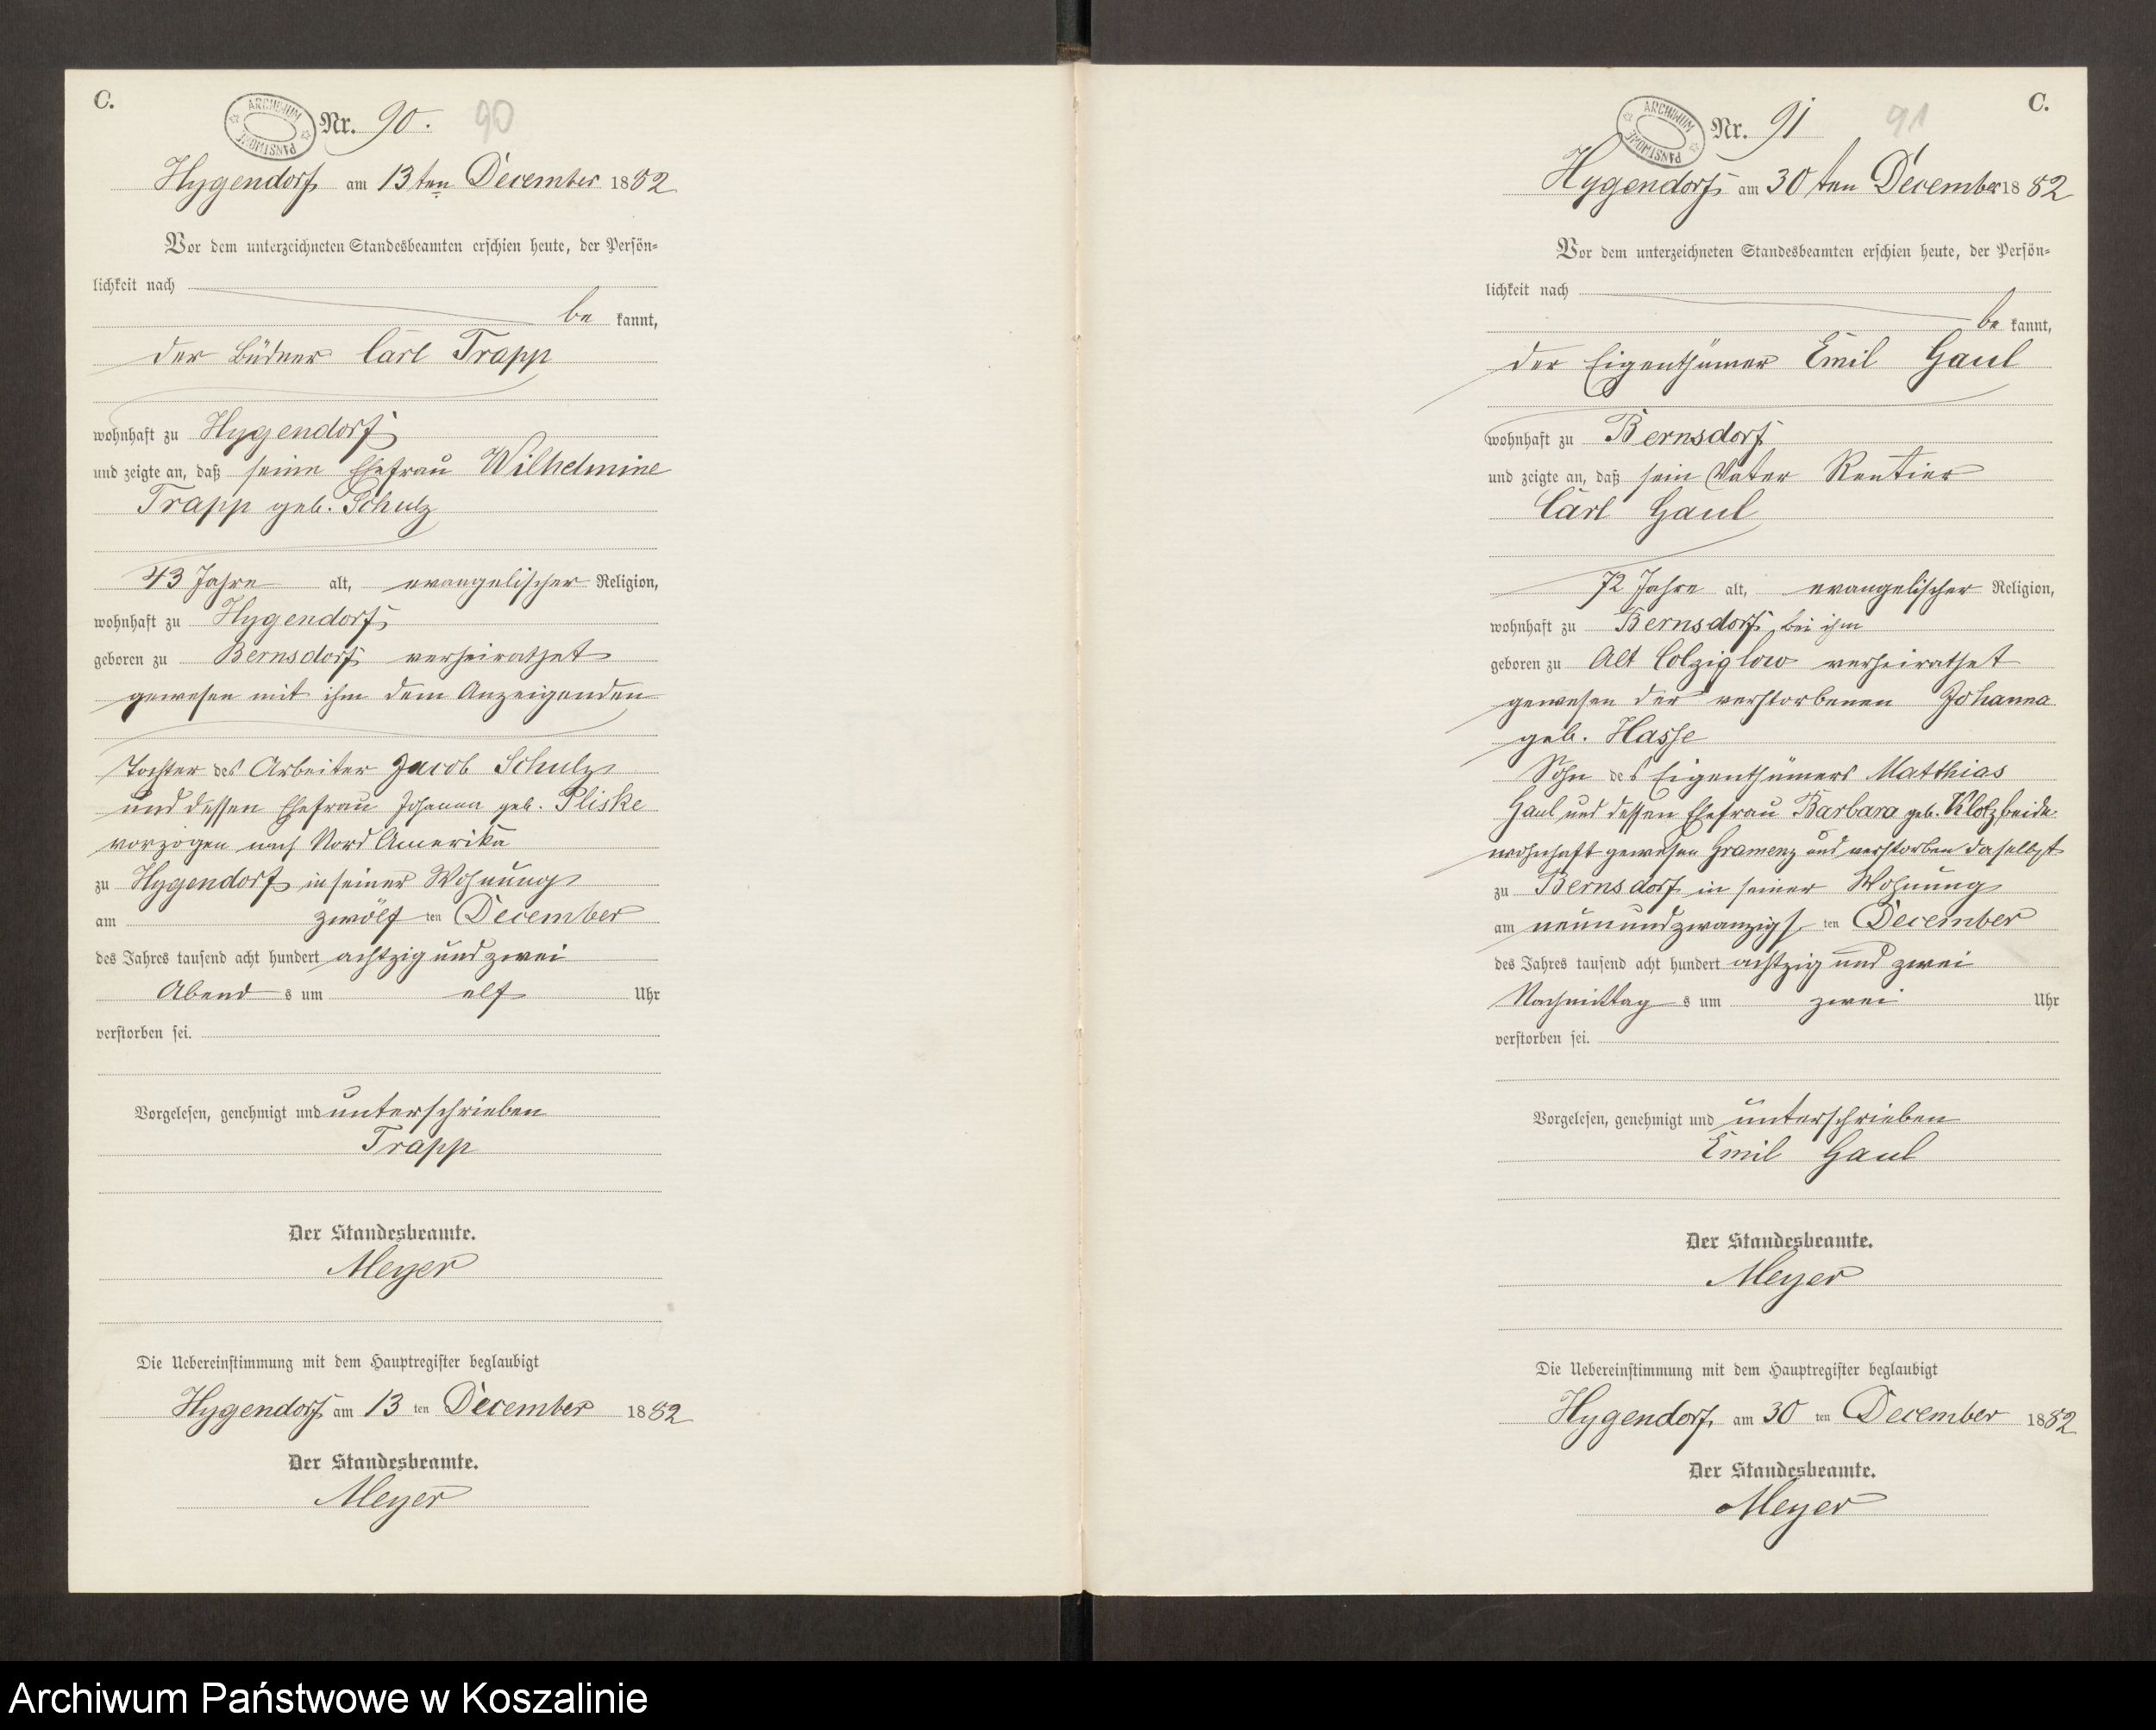 C.
ARCHIWUM PAŃSTWOWE
Nr. 90. 90
Hygendorf am 13ten December 1882
Vor dem unterzeichneten Standesbeamten erschien heute, der Persön=
lichkeit nach
be kannt,
der Büdner Carl Trapp
wohnhaft zu Hygendorf
und zeigte an, daß seine Ehefrau Wilhelmine
Trapp geb. Schulz
43 Jahre alt, evangelischer Religion,
wohnhaft zu Hygendorf
geboren zu Bernsdorf verheirathet
gewesen mit ihm dem Anzeigenden
Tochter des Arbeiter Jacob Schulz
und dessen Ehefrau Johanna geb. Pliske
verzogen nach Nord Amerika
zu Hygendorf in seiner Wohnung
am zwölf ten December
des Jahres tausend acht hundert achtzig und zwei
Abend s um elf Uhr
verstorben sei.
Vorgelesen, genehmigt und unterschrieben
Trapp
Der Standesbeamte.
Meyer
Die Uebereinstimmung mit dem Hauptregister beglaubigt
Hygendorf am 13 ten December 1882
Der Standesbeamte.
Meyer
C.
ARCHIWUM PAŃSTWOWE
Nr. 91 91
Hygendorf am 30 ten December 1882
Vor dem unterzeichneten Standesbeamten erschien heute, der Persön=
lichkeit nach
be kannt,
der Eigenthümer Emil Gaul
wohnhaft zu Bernsdorf
und zeigte an, daß sein Vater Rentier
Carl Gaul
72 Jahre alt, evangelischer Religion,
wohnhaft zu Bernsdorf, bei ihm
geboren zu Alt Colziglow verheirathet
gewesen der verstorbenen Johanna
geb. Hasse
Sohn des Eigenthümers Matthias
Gaul und dessen Ehefrau Barbara geb. Klotz beide
wohnhaft gewesen Gramenz und verstorben daselbst
zu Bernsdorf in seiner Wohnung
am neunundzwanzigs ten December
des Jahres tausend acht hundert achtzig und zwei
Nachmittag s um zwei Uhr
verstorben sei.
Vorgelesen, genehmigt und unterschrieben
Emil Gaul
Der Standesbeamte.
Meyer
Die Uebereinstimmung mit dem Hauptregister beglaubigt
Hygendorf am 30 ten December 1882
Der Standesbeamte.
Meyer
Archiwum Państwowe w Koszalinie